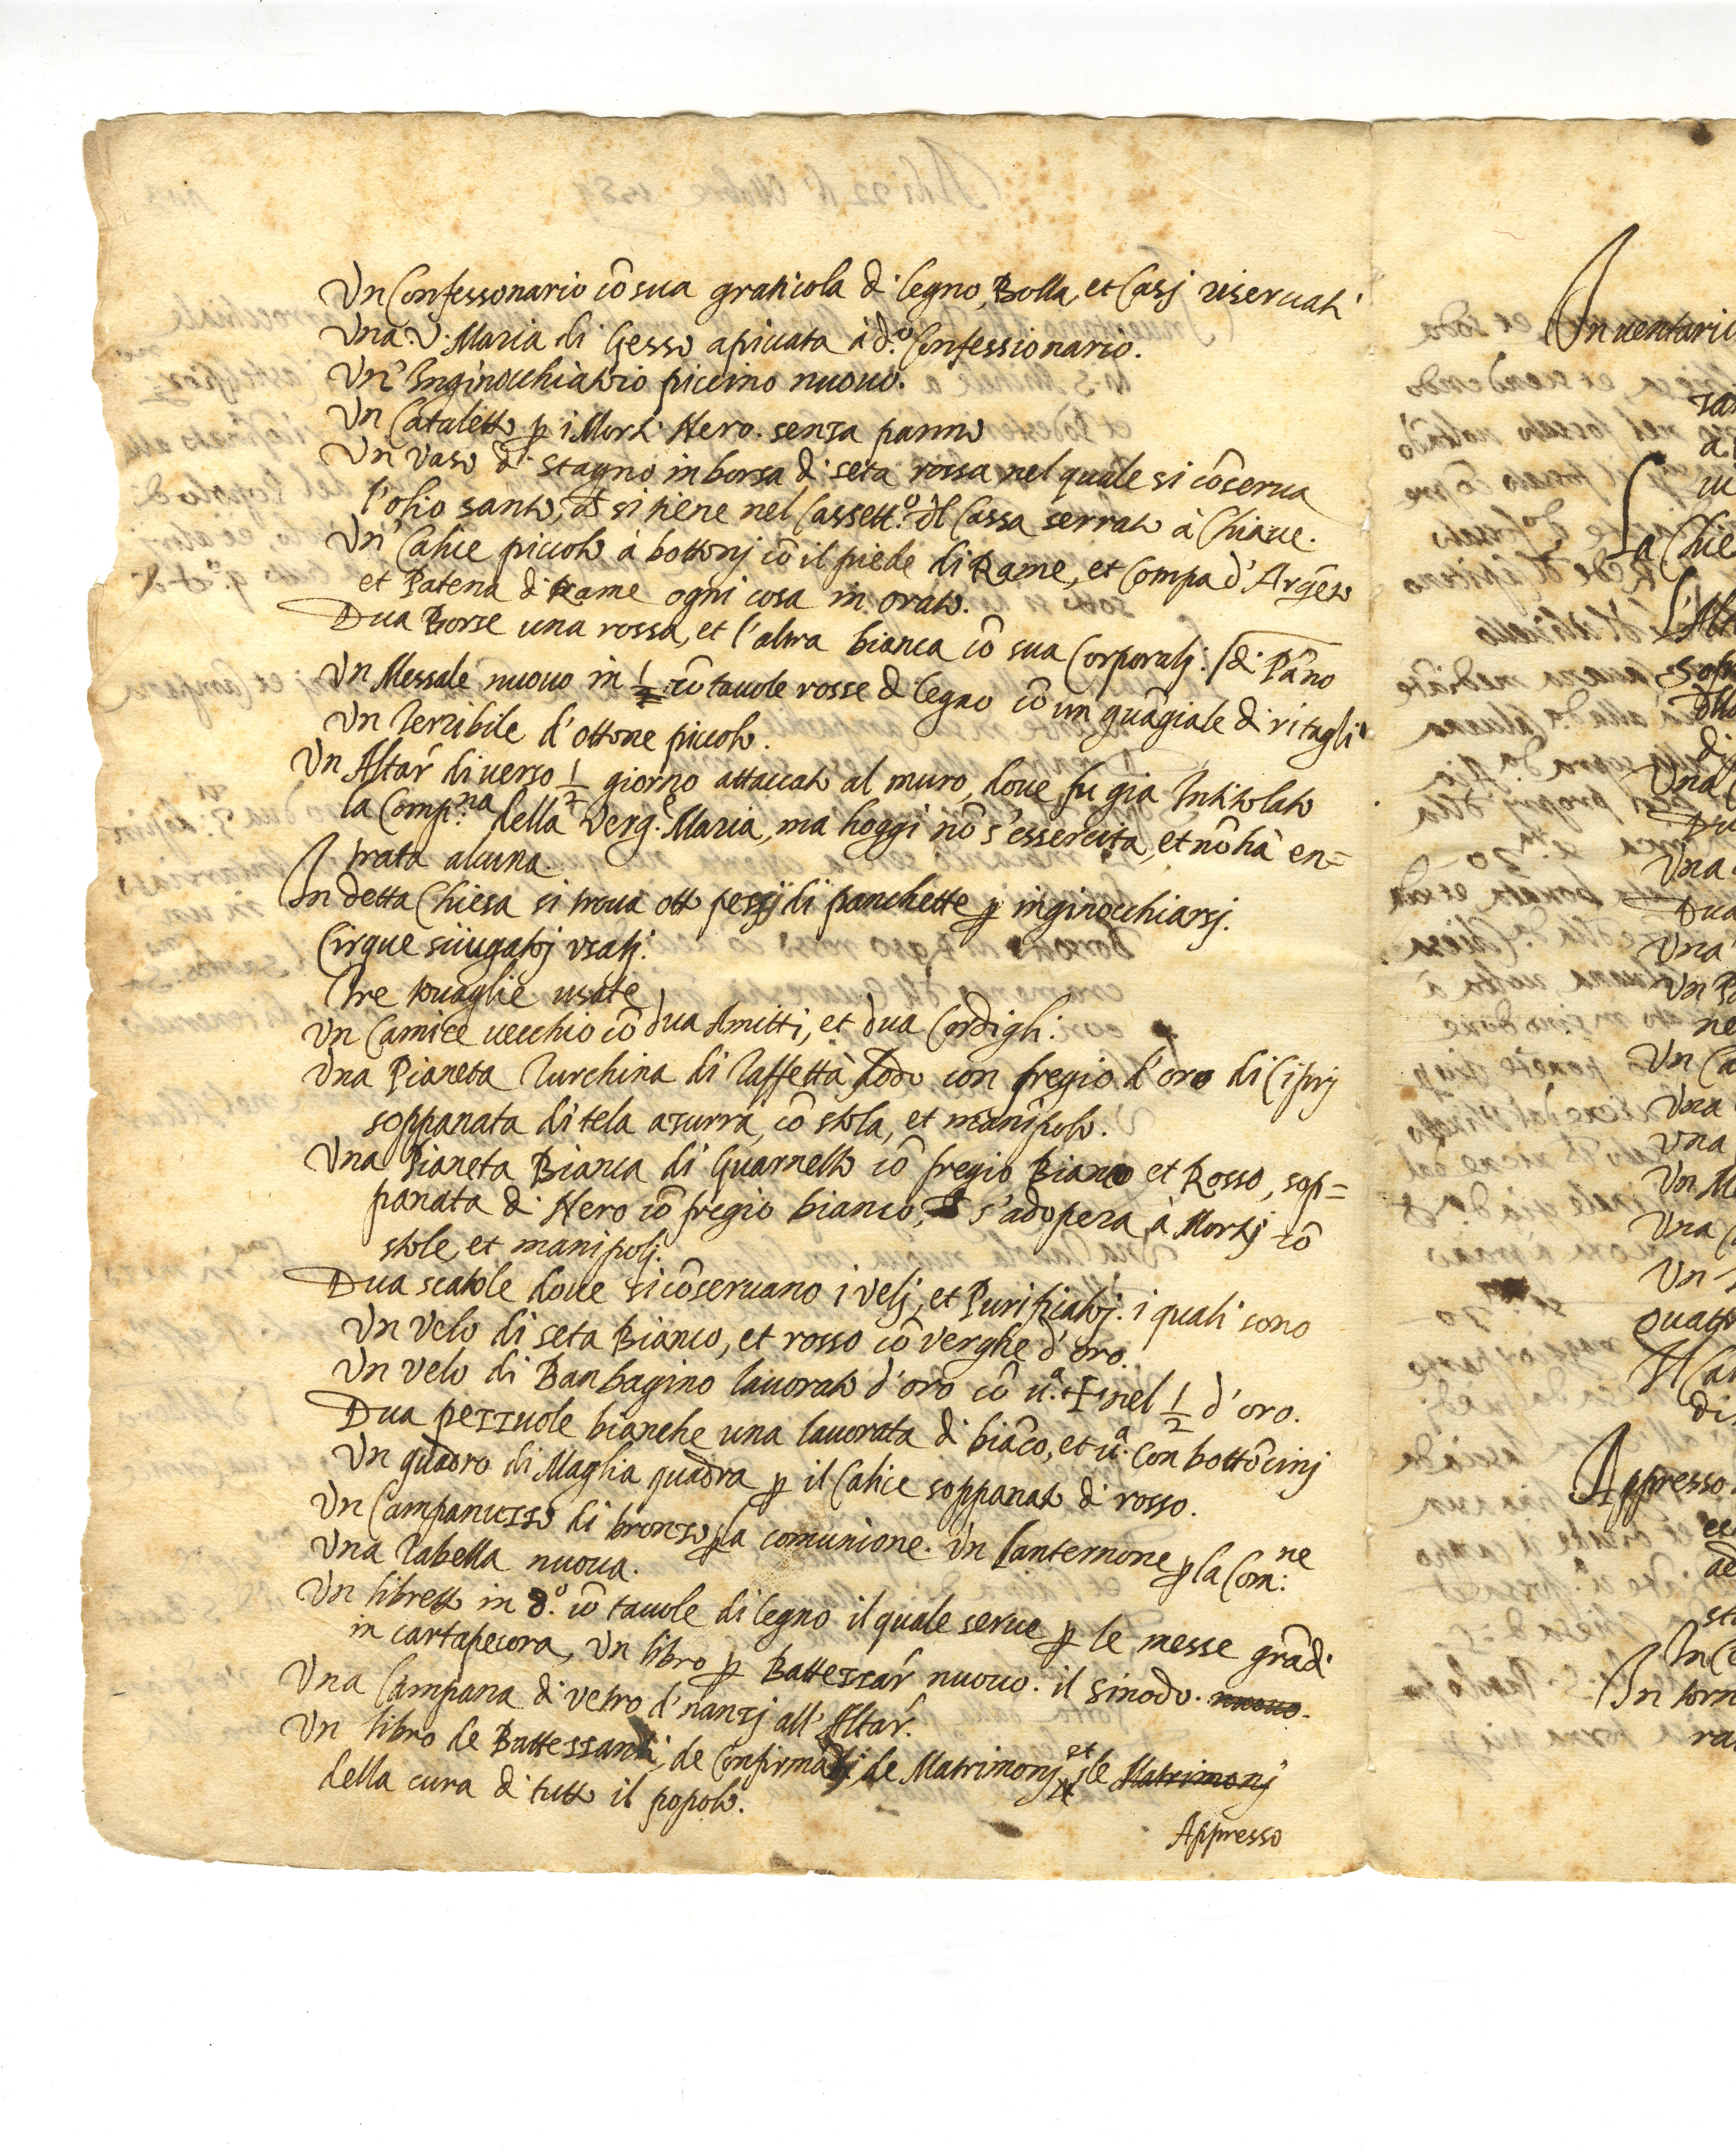 Un Confessonario cō sua graticola di legno, Bolla, et Casj riseruati
Una V. Maria di Gesso apiccata à d.º Confessionario.
Un' Inginocchiatoio piccino nuouo.
Un Cataletto p i Morti Nero. senza panno
Un Vaso di Stagno in borsa di seta rossa nel quale si cōserua
l'olio santo, et si tiene nel Cassett.º dl Cassa serrato à Chiaue.
Un Calice piccolo à bottonj cō il piede di Rame, et Compa d'Argēto
et Patena di Rame ogni cosa in orato.
Dua Borse una rossa, et l'altra bianca cō sua Corporalj.
Un Messale nuouo in 1/2 cō tauole rosse d legno cō un guāciale di ritagli
di Pāno
Un Terribile d'ottone piccolo.
Un Altar' di uerso 1/2 giorno attaccato al muro, doue fu gia Intitolato
la Comp.na della Verg.e Maria, ma hoggi nō s'essercita, et nō hà en=
trata alcuna
In detta Chiesa si troua otto pezzj di panchette p inginocchiarsj.
Cinque sciugatoj usatj.
Tre touaglie usate
Un Camice uecchio cō dua Amitti, et dua Cordigli.
Una Pianeta Turchina di Taffettà dodo con fregio d'oro di Ciprj
soppanata di tela azurra, cō stola, et manipolo.
Una Pianeta Bianca di Guarnello cō fregio Bianco et Rosso, sop=
panata di Nero cō fregio bianco, et s'adopera à Mortj cō
stole, et manipolj.
Dua scatole doue si cōseruano i velj, et Purificatoj. i quali sono
Un velo di seta Bianco, et rosso cō verghe d'oro.
Un velo di Banbagino lauorato d'oro cō u.a + nel 1/2 d'oro.
Dua pezzuole bianche una lauorata di biāco, et u.a con bottōcinj
Un quadro di Maglia quadra p il Calice soppanato di rosso.
Un Campanuzzo di bronzo p la comunione. Un Lanternone p la Com:ne
Una Tabella nuoua.
Un libretto in 8.º cō tauole di legno il quale serue p le messe grādi
in cartapecora, Un libro p Battezzar' nuouo. il Sinodo. nuouo.
Una Campana di vetro d'nanzj all'Altar'.
Un libro de Battezzati, de Confirmatj, de Matrimonj, et le Matrimonj
della cura di tutto il popolo.
Appresso
Inuentario
La Chie
L'Alt
sop
Una
Una
Dua
Una
Un
ne
Un Ca
Una
una
Un M
Una
Un
quattr
Appresso
In torn
ra